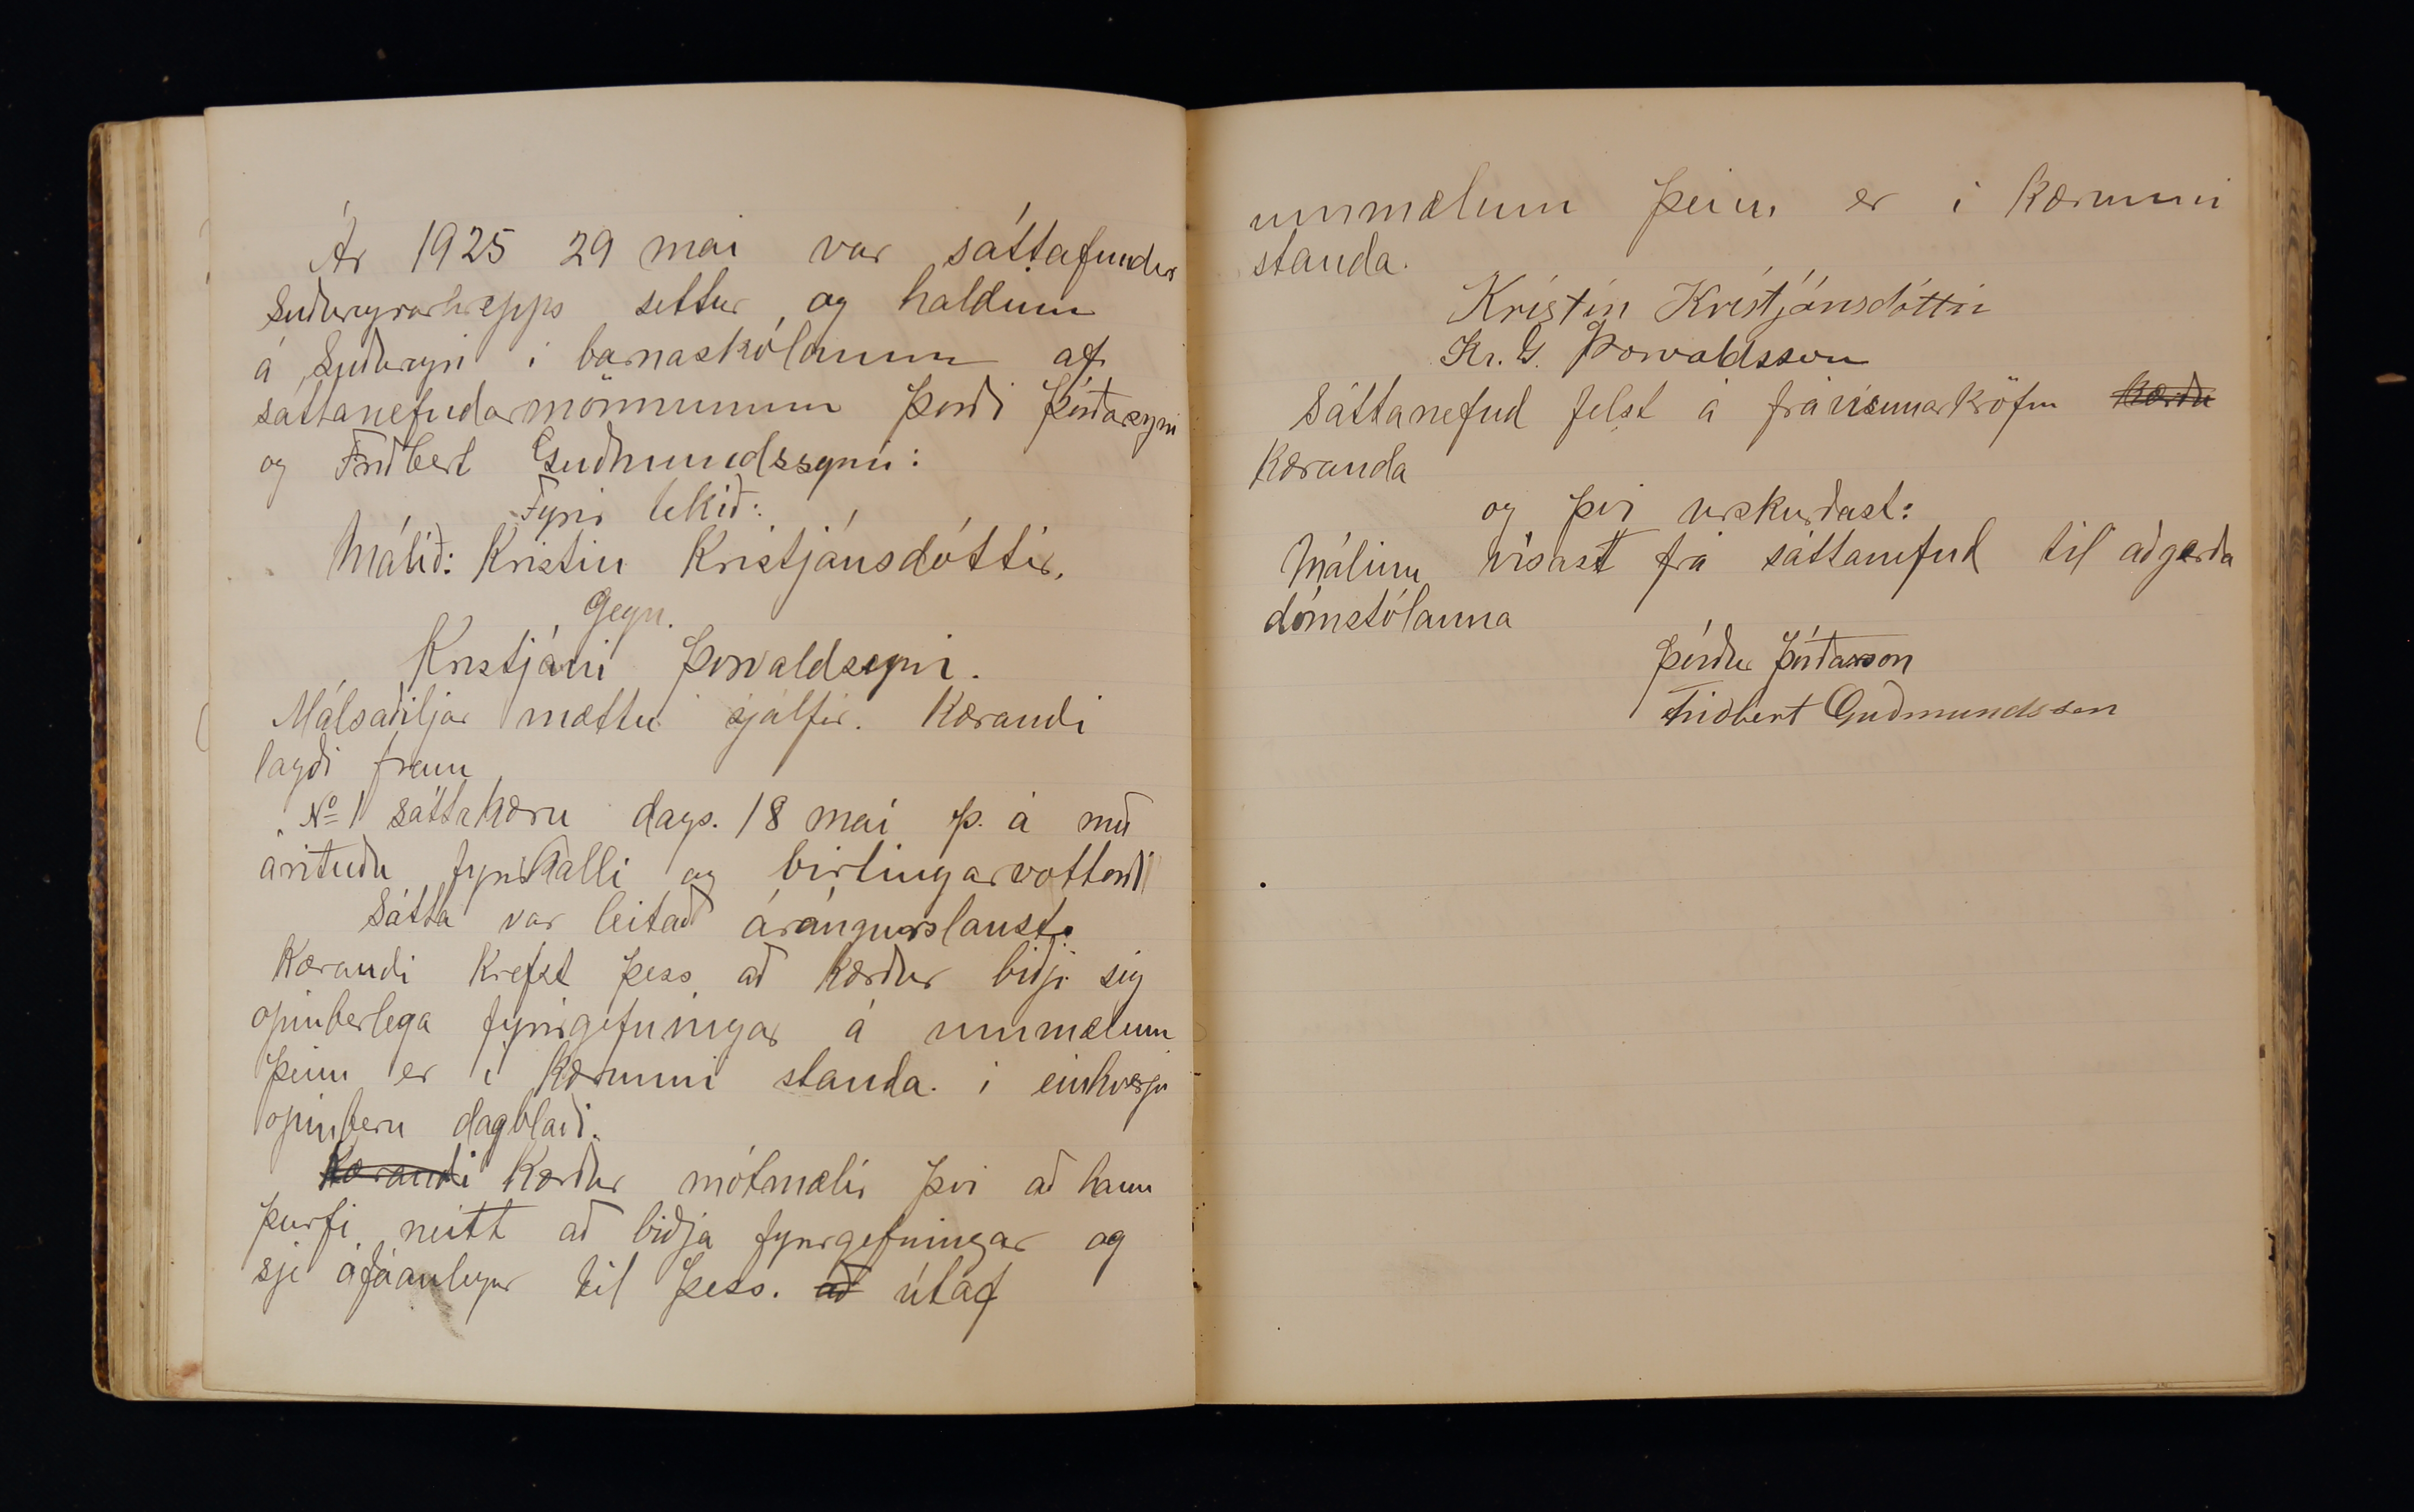 Ár 1925 29 mai var sáttafundur
Suðureyrarhrepps settur og haldinn
á Suðureyri i barnaskólanum af
sáttanefndarmönnunum Þorði Þórðarsyni
og Friðbert Guðmundssyni:
Fyrir tekið:
Málið: Kristin Kristjánsdóttir.
Gegn.
Kristjáni Þorvaldssyni.
Málsaðiljar mættu sjálfir. Kærandi
lagði fram
No 1 sáttakæru dags. 18 mai þ. á með
árituðu fyrirkalli og birtingarvottorði
Sátta var leitað árángurslaust.
Kærandi krefst þess að kærður biðji sig
opinberlega fyrirgefningar á ummælum
þeim er i kærunni standa. i einhverju
opinberu dagblaði.
Kærandi Kærður mótmælir þvi að hann
þurfi neitt að biðja fyrirgefningar og
sje ófáanlegur til þess. að útaf
ummælum þeim er i kærunni
standa.
Kristín Kristjánsdóttir
Kr. G. Þorvaldsson
Sáttanefnd felst á frávisunarkröfu kærðu
kæranda
og þvi urskurðast:
Málinu visast frá sáttanefnd til aðgerða
dómstólanna
Þórður Þórðarson
Friðbert Guðmundsson